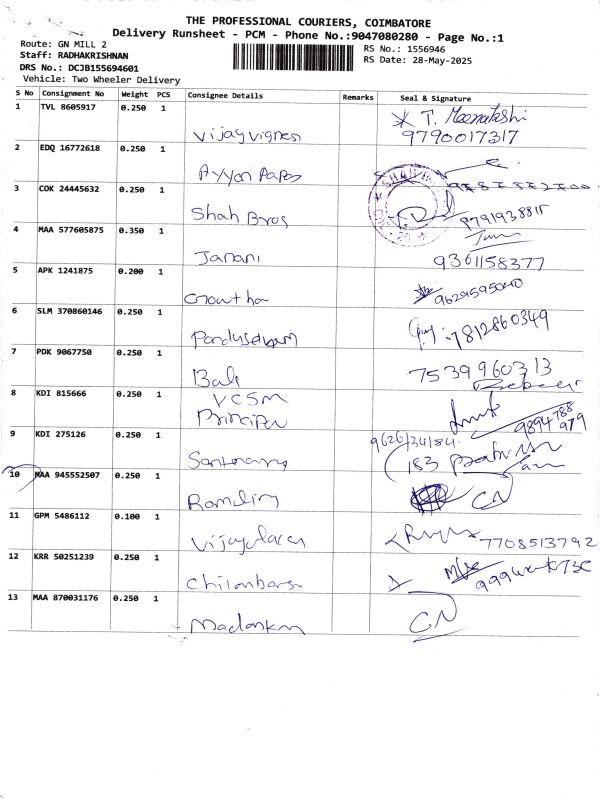 THE PROFESSIONAL COURIERS, COIMBATORE
Delivery Runsheet - PCM - Phone No.:9047080280 - Page No.:1
Route: GN MILL 2
RS No.: 1556946
Staff: RADHAKRISHNAN
RS Date: 28-May-2025
DRS No.: DCJB155694601
Vehicle: Two Wheeler Delivery
S No Consignment No Weight PCS Consignee Details Remarks Seal & Signature
1 TVL 8605917 0.250 1
T. Meenatchi
Vijayvignesh 9790017317
2 EDQ 16772618 0.250 1
Ayyan Papes
3 COK 24445632 0.250 1
Shah Bros 8791938815
4 MAA 577605875 0.350 1
Janani 9361158377
5 APK 1241875 0.200 1
Gowtha 9629595040
6 SLM 370860146 0.250 1
7812860349
Pandiselvam
7 PDK 9067750 0.250 1
Bali 7539960313
8 KDI 815666 0.250 1
VCSM
Principal 9894788979
9 KDI 275126 0.250 1
9626734184
183
10 MAA 945552507 0.250 1
Ramaling CN
11 GPM 5486112 0.100 1
7708513792
12 KRR 50251239 0.250 1
13 MAA 870031176 0.250 1
CN